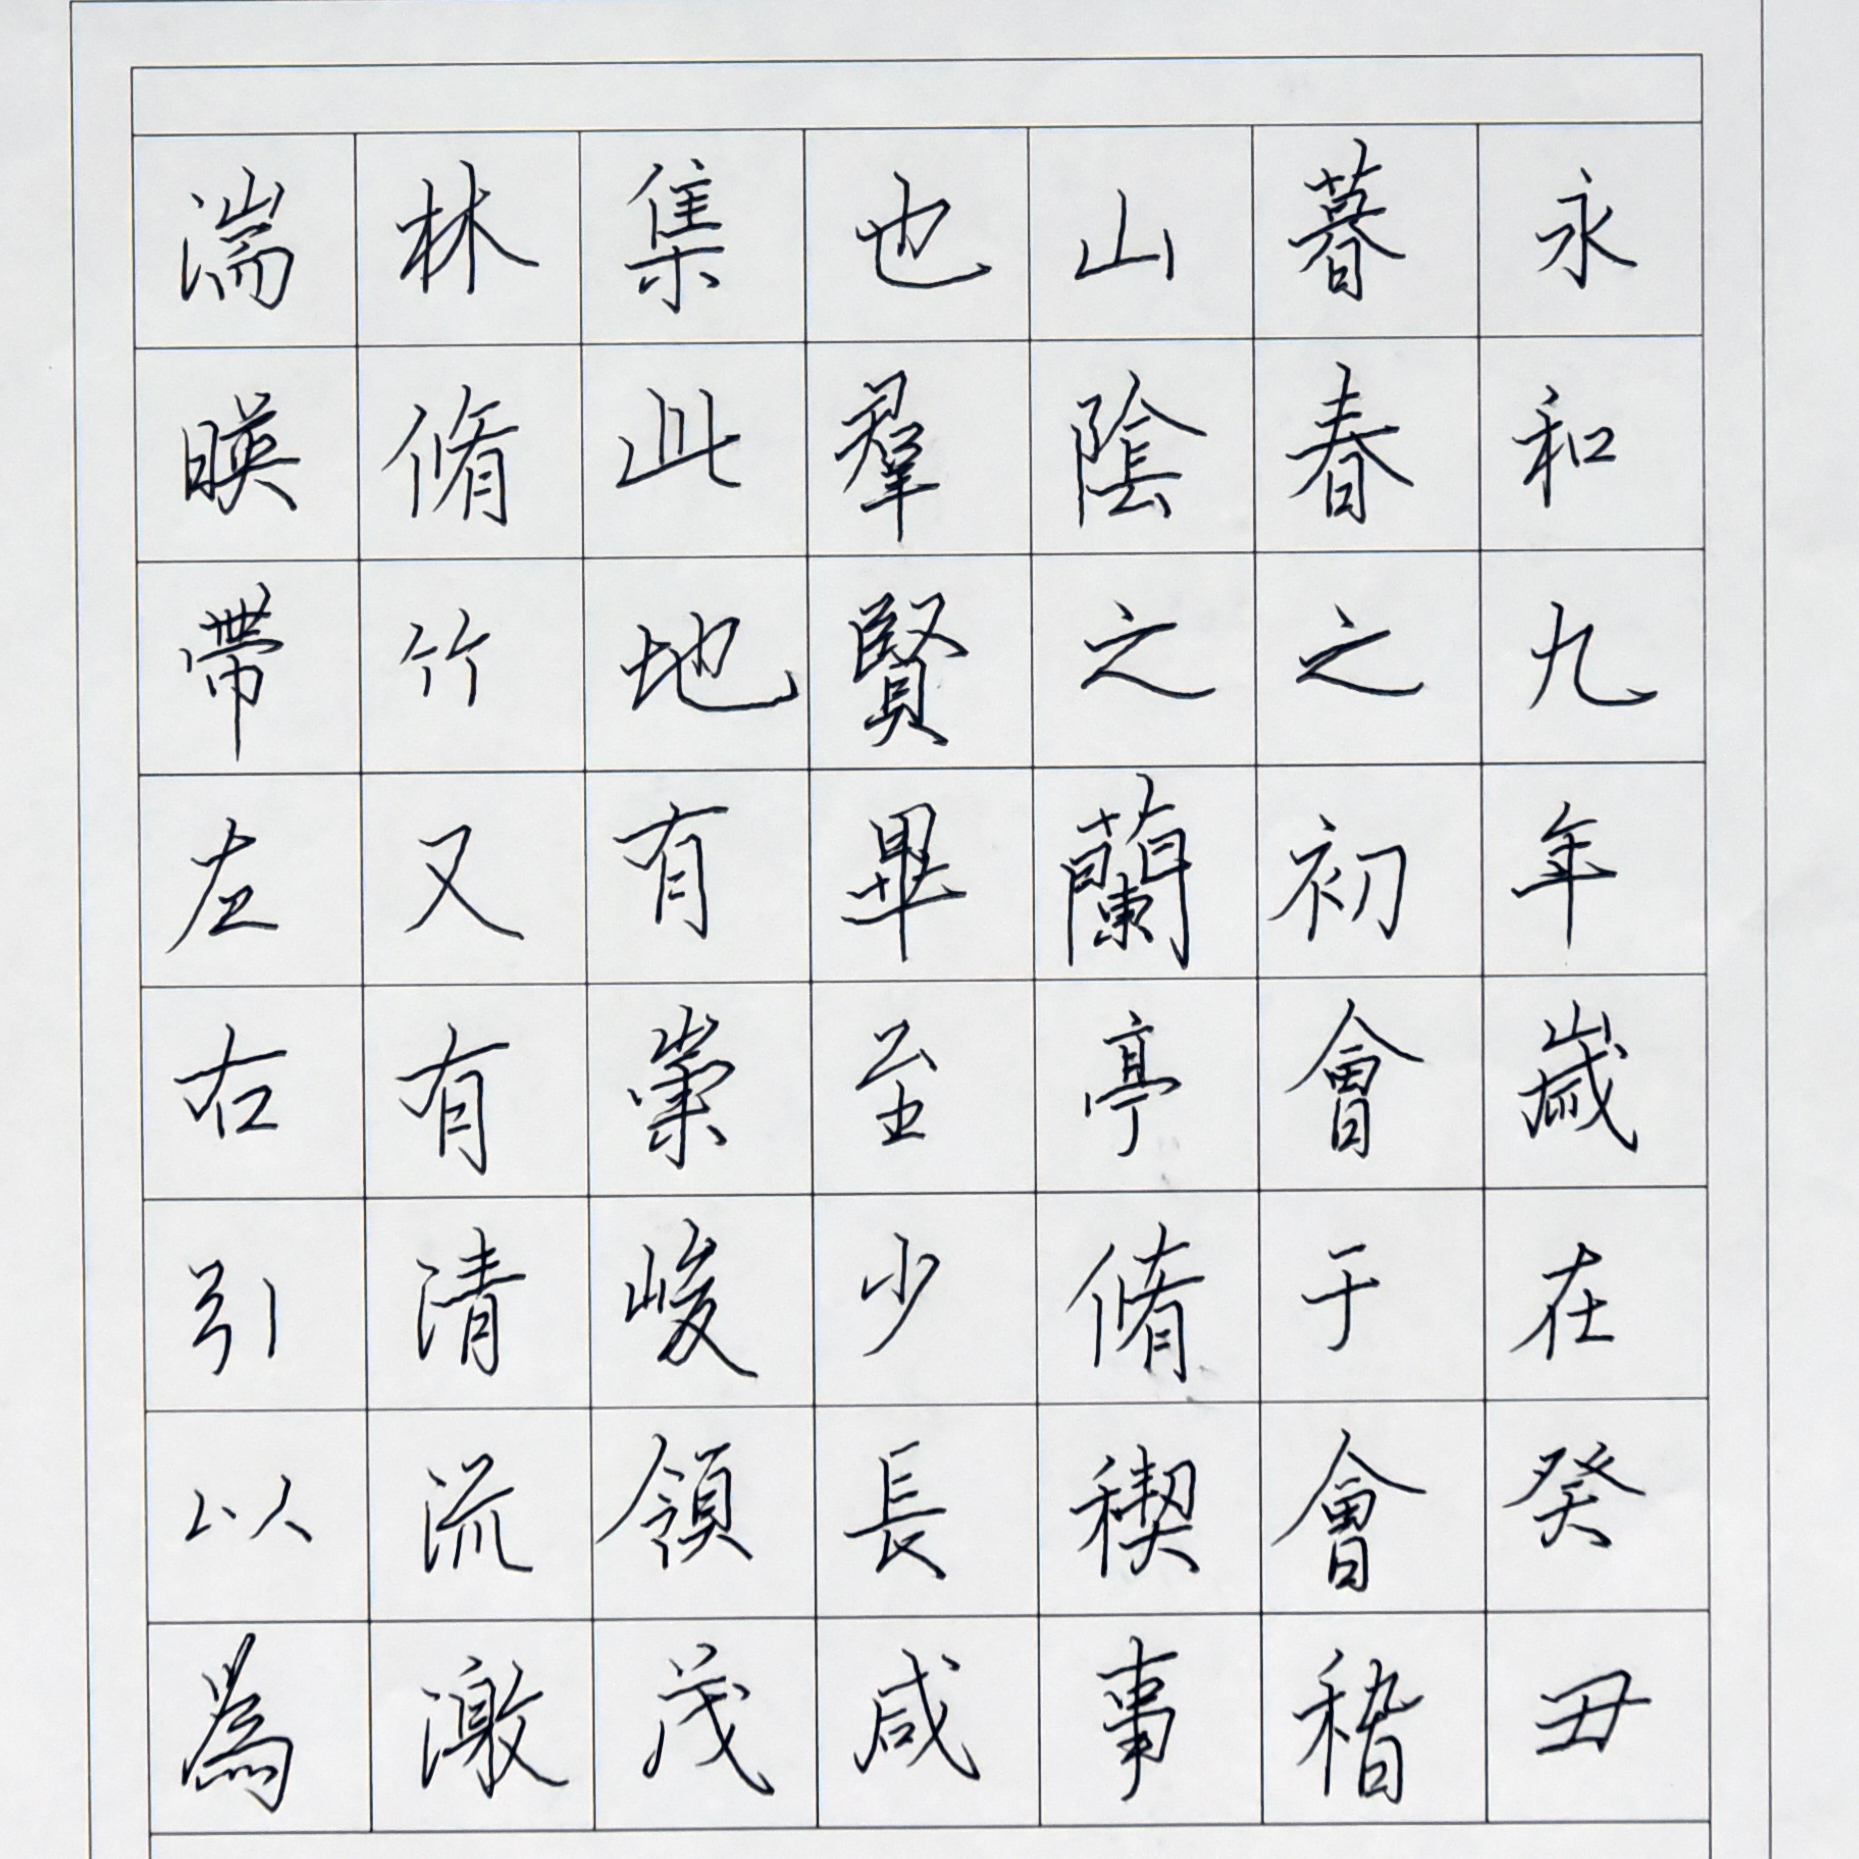 永和九年歲在癸丑
暮春之初會于會稽
山陰之蘭亭脩稧事
也羣賢畢至少長咸
集此地有崇峻領茂
林脩竹又有清流激
湍暎帶左右引以為